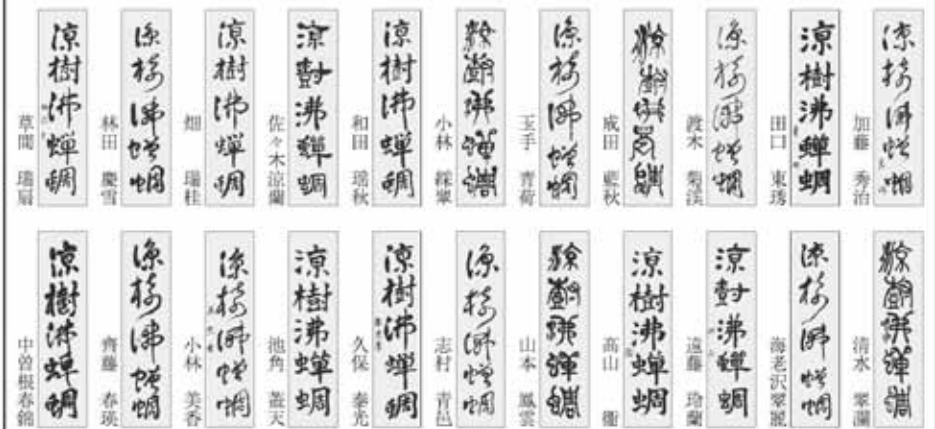 涼樹沸蝉蜩
加藤 秀治
涼樹沸蝉蜩
田口 東琇
涼樹沸蝉蜩
渡木 菊渓
涼樹沸蝉蜩
成田 藍秋
涼樹沸蝉蜩
玉手 青荷
涼樹沸蝉蜩
小林 綵翠
涼樹沸蝉蜩
和田 瑶秋
涼樹沸蟬蜩
佐々木涼蘭
涼樹沸蝉蜩
畑 瑞桂
涼樹沸蝉蜩
林田 慶雪
涼樹沸蝉蜩
草間 瑞扇
涼樹沸蝉蜩
清水 翠瀾
涼樹沸蝉蜩
海老沢翠麗
涼樹沸蟬蜩
遠藤 玲蘭
涼樹沸蟬蜩
高山
涼樹沸蝉蜩
山本 鳳雲
涼樹沸蝉蜩
志村 青邑
涼樹沸蝉蜩
久保 泰光
涼樹沸蟬蜩
池角
涼樹沸蝉蜩
小林 美香
涼樹沸蝉蜩
齊藤 春瑛
涼樹沸蝉蜩
中曽根春錦